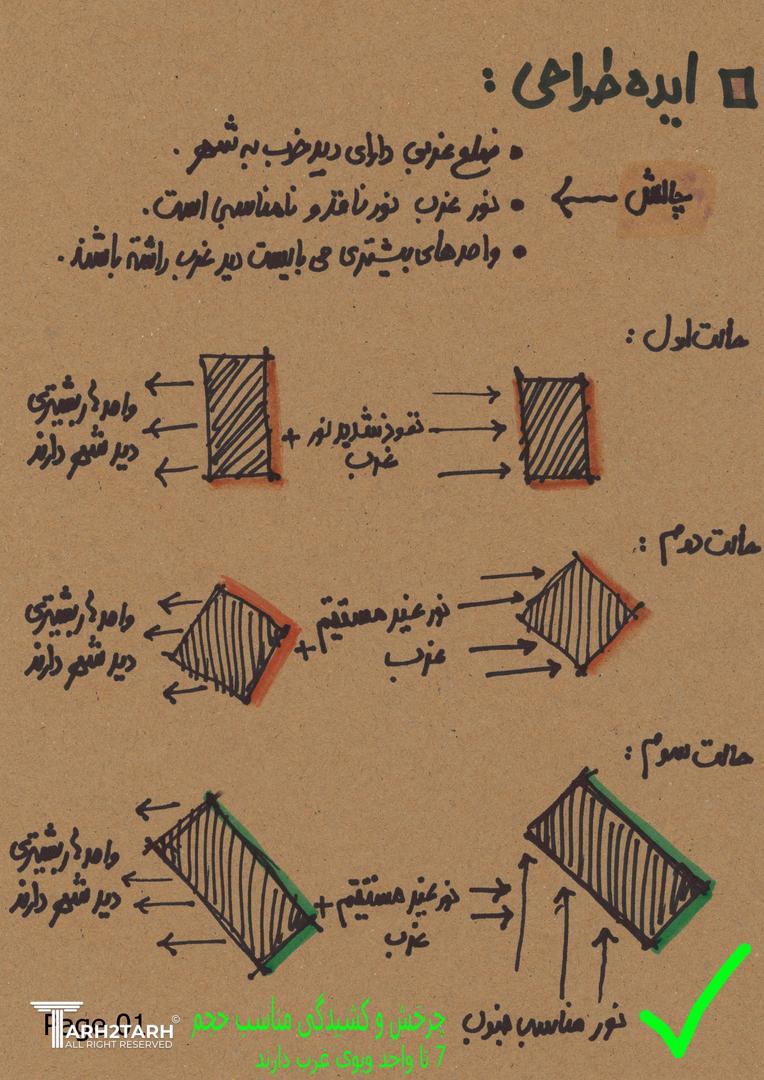 ایده طراحی :
• ضلع غربی دارای دید خوب به شهر .
چالش
• نور غرب نور نافذ و نامناسب است.
• واحدهای بیشتری می بایست دید غرب داشته باشند .
حالت اول :
نفوذ شدید نور غرب
+
واحدهای بیشتری
دید شهر دارند
حالت دوم :
نور غیر مستقیم
غرب
+
واحدهای بیشتری
دید شهر دارند
حالت سوم :
نور غیر مستقیم
غرب
+
واحدهای بیشتری
دید شهر دارند
نور مناسب جنوب
چرخش و کشیدگی مناسب حجم
7 تا واحد ویوی غرب دارند
Page 01
TARH2TARH©
ALL RIGHT RESERVED